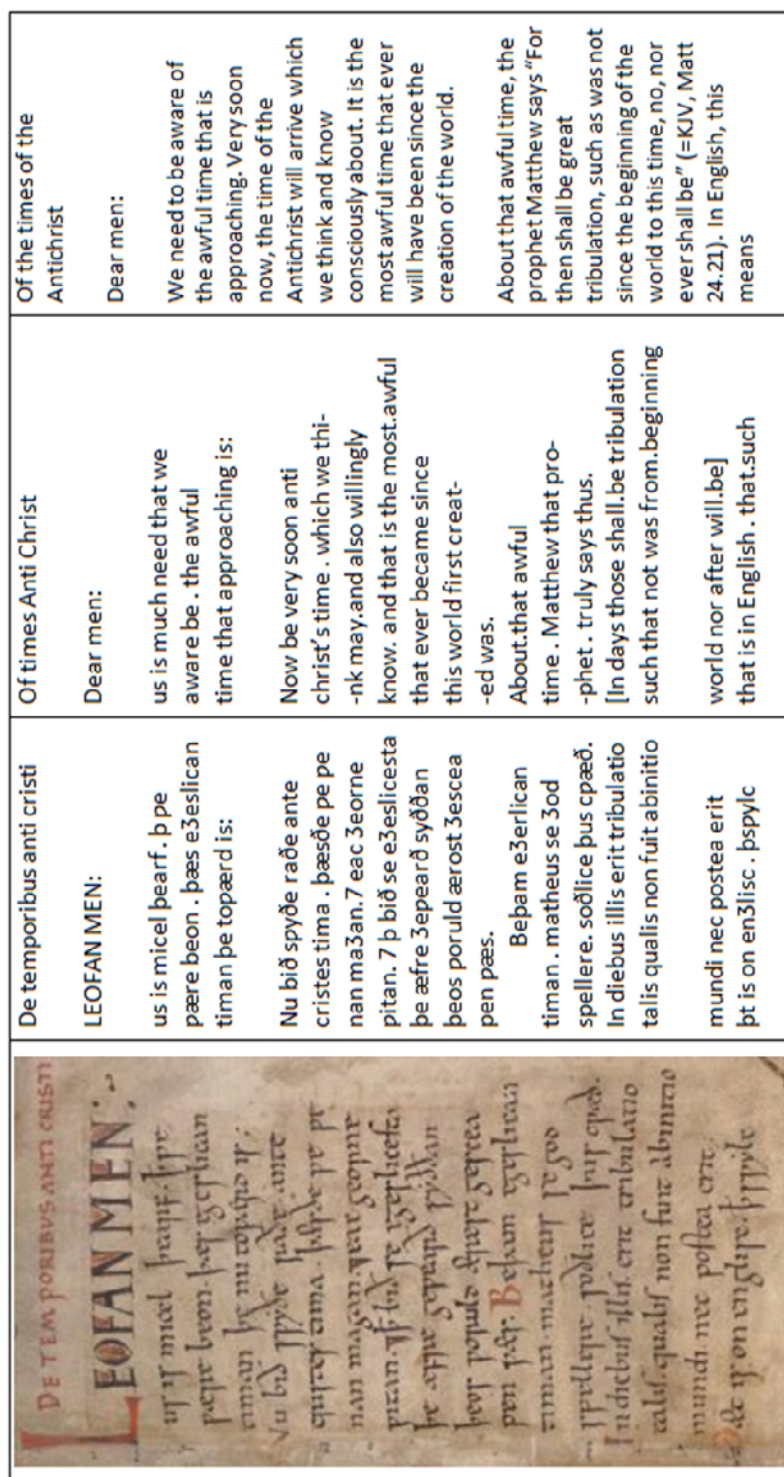 DE TEMPORIBVS ANTI CRISTI
LEOFAN MEN:
us is micel þearf. ꝥ ƿe
ƿære beon. þæs egeslican
timan þe nu toƿeard is;
Nu bið sƿyðe raðe ante
cristes tima. þæsðe ƿe ƿe
nan magan. ⁊ eac georne
ƿitan. ⁊ ꝥ bið se egeslicesta
þe æfre geƿearð syððan
þeos ƿoruld ærost gescea
pen ƿæs. Beþam egeslican
timan. matheus se god
spellere. soðlice þus cƿæð.
In diebus illis. erit tribulatio
talis. qualis non fuit abinitio
mundi. nec postea erit;
is on englisc. ꝥ sƿylc
De temporibus anti cristi
LEOFAN MEN:
us is micel þearf. þ pe
pære beon . þæs eȝeslican
timan þe topærd is:
Nu bið spyðe raðe ante
cristes tima . þæsðe pe pe
nan maȝan. 7 eac ȝeorne
pitan. 7 þ bið se eȝeslicesta
þe æfre ȝepearð syððan
þeos poruld ærost ȝescea
pen pæs.
Beþam eȝerlican
timan . matheus se ȝod
spellere. soðlice þus cpæð.
In diebus illis erit tribulatio
talis qualis non fuit abinitio
mundi nec postea erit
þt is on enȝlisc . þspylc
Of times Anti Christ
Dear men:
us is much need that we
aware be . the awful
time that approaching is:
Now be very soon anti
christ's time . which we thi-
-nk may.and also willingly
know. and that is the most.awful
that ever became since
this world first creat-
-ed was.
About.that awful
time . Matthew that pro-
-phet . truly says thus.
[In days those shall.be tribulation
such that not was from.beginning
world nor after will.be]
that is in English . that.such
Of the times of the
Antichrist
Dear men:
We need to be aware of
the awful time that is
approaching. Very soon
now, the time of the
Antichrist will arrive which
we think and know
consciously about. It is the
most awful time that ever
will have been since the
creation of the world.
About that awful time, the
prophet Matthew says "For
then shall be great
tribulation, such as was not
since the beginning of the
world to this time, no, nor
ever shall be" (=KJV, Matt
24.21). In English, this
means